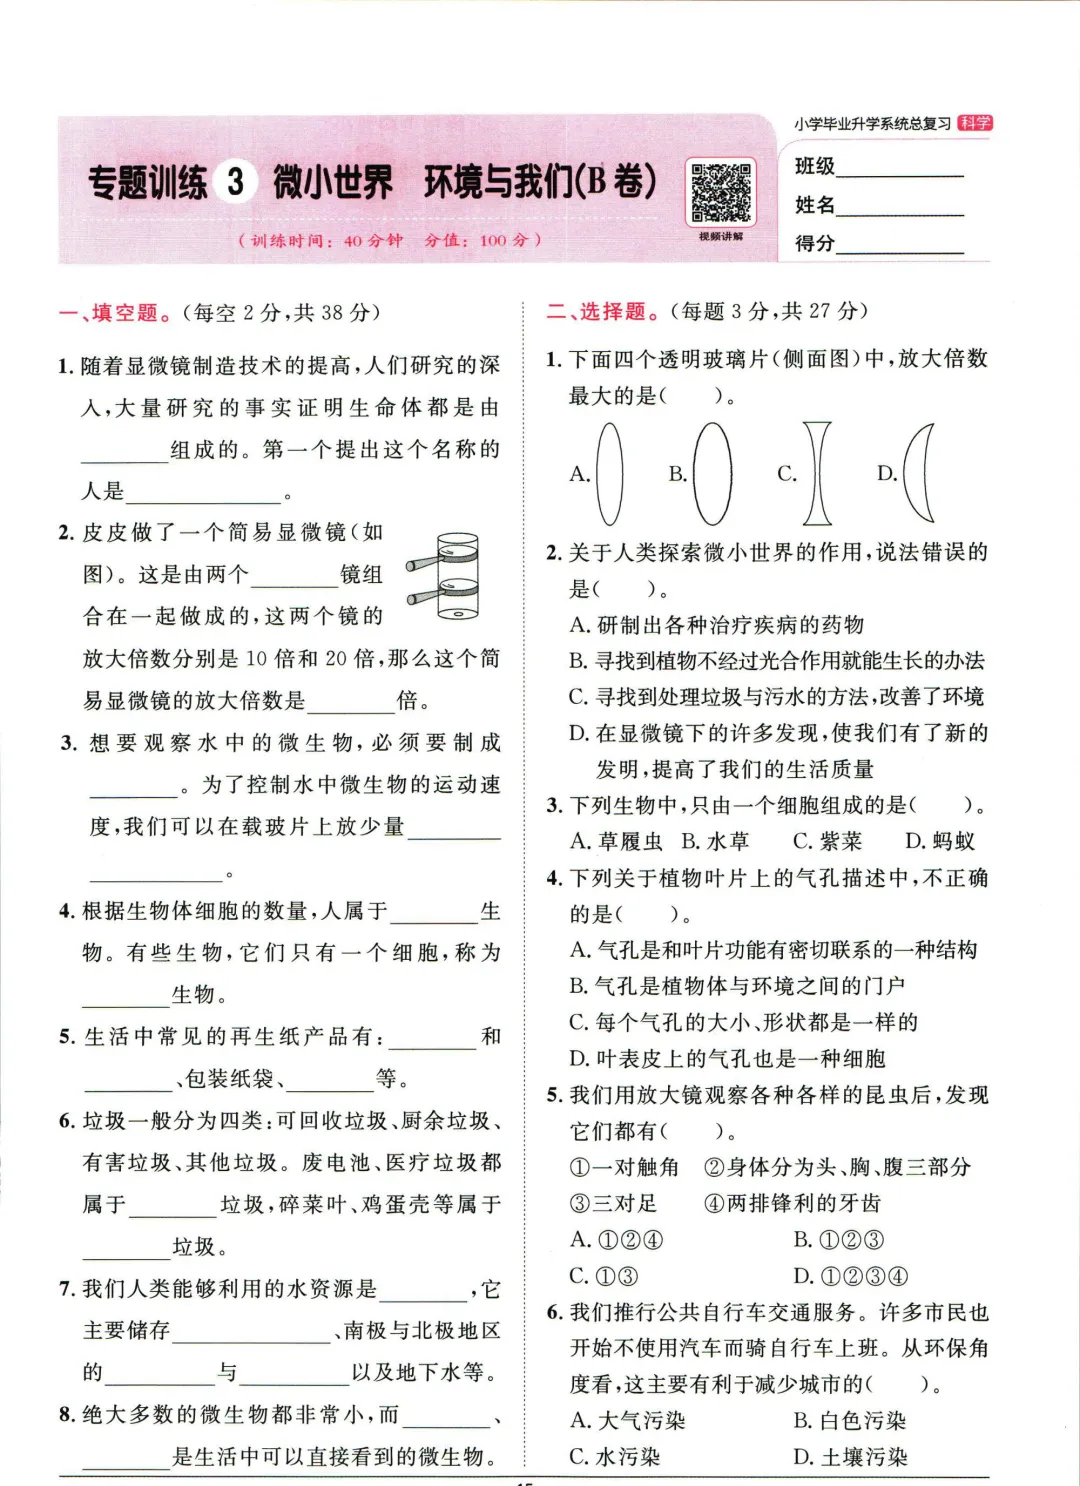 小学毕业升学系统总复习 科学
专题训练 3 微小世界 环境与我们(B卷)
(训练时间:40分钟 分值:100分)
视频讲解
班级
姓名
得分
一、填空题。(每空2分,共38分)
1. 随着显微镜制造技术的提高,人们研究的深
入,大量研究的事实证明生命体都是由
________组成的。第一个提出这个名称的
人是______________。
2. 皮皮做了一个简易显微镜(如
图)。这是由两个________镜组
合在一起做成的,这两个镜的
放大倍数分别是10倍和20倍,那么这个简
易显微镜的放大倍数是________倍。
3. 想要观察水中的微生物,必须要制成
________。为了控制水中微生物的运动速
度,我们可以在载玻片上放少量________
____________。
4. 根据生物体细胞的数量,人属于________生
物。有些生物,它们只有一个细胞,称为
________生物。
5. 生活中常见的再生纸产品有:________和
________、包装纸袋、________等。
6. 垃圾一般分为四类:可回收垃圾、厨余垃圾、
有害垃圾、其他垃圾。废电池、医疗垃圾都
属于________垃圾,碎菜叶、鸡蛋壳等属于
________垃圾。
7. 我们人类能够利用的水资源是________,它
主要储存______________、南极与北极地区
的__________与__________以及地下水等。
8. 绝大多数的微生物都非常小,而________、
________是生活中可以直接看到的微生物。
二、选择题。(每题3分,共27分)
1. 下面四个透明玻璃片(侧面图)中,放大倍数
最大的是( )。
A. B. C. D.
2. 关于人类探索微小世界的作用,说法错误的
是( )。
A. 研制出各种治疗疾病的药物
B. 寻找到植物不经过光合作用就能生长的办法
C. 寻找到处理垃圾与污水的方法,改善了环境
D. 在显微镜下的许多发现,使我们有了新的
发明,提高了我们的生活质量
3. 下列生物中,只由一个细胞组成的是( )。
A. 草履虫 B. 水草 C. 紫菜 D. 蚂蚁
4. 下列关于植物叶片上的气孔描述中,不正确
的是( )。
A. 气孔是和叶片功能有密切联系的一种结构
B. 气孔是植物体与环境之间的门户
C. 每个气孔的大小、形状都是一样的
D. 叶表皮上的气孔也是一种细胞
5. 我们用放大镜观察各种各样的昆虫后,发现
它们都有( )。
①一对触角 ②身体分为头、胸、腹三部分
③三对足 ④两排锋利的牙齿
A. ①②④ B. ①②③
C. ①③ D. ①②③④
6. 我们推行公共自行车交通服务。许多市民也
开始不使用汽车而骑自行车上班。从环保角
度看,这主要有利于减少城市的( )。
A. 大气污染 B. 白色污染
C. 水污染 D. 土壤污染